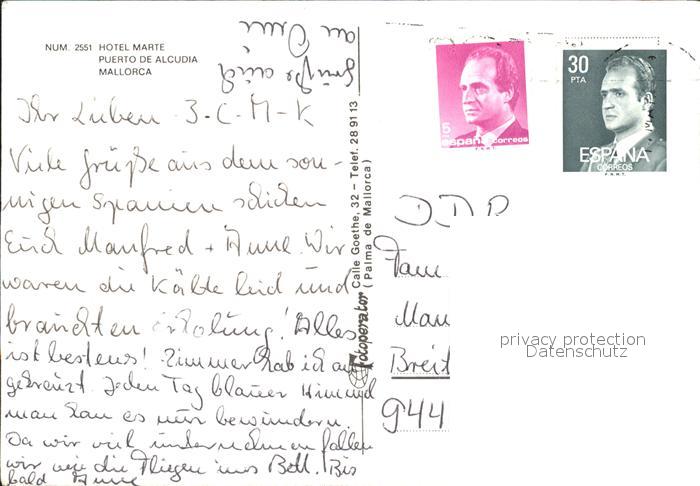 NUM. 2551 HOTEL MARTE
PUERTO DE ALCUDIA
MALLORCA
Grüße auch
an Omi
Ihr Lieben 3-C-M-K
Viele Grüße aus dem son-
nigen Spanien schicken
Euch Manfred + Anne. Wir
waren die Kälte leid und
brauchten Erholung! Alles
ist bestens! Zimmer hab ich an
gekreuzt. Jeden Tag blauer Himmel
man kann es nur bewundern.
Da wir viel unternehmen fallen
wir wie die Fliegen ins Bett. Bis
bald Anne
Fotoperator Calle Goethe, 32 – Telef. 28 91 13
(Palma de Mallorca)
5
españa correos
F.N.M.T.
30
PTA
ESPAÑA
CORREOS
F.N.M.T.
DDR
Fam
Man
Breit
944
privacy protection
Datenschutz